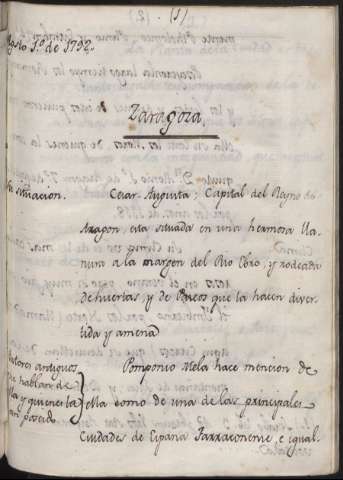 (1)
Agosto 1.º de 1792.
Zaragoza
Su situacion.
Cesar Augusta, Capital del Reyno de
Aragon, esta situada en una hermosa lla-
nura a la margen del Rio Ebro, y rodeada
de huertas, y de Paseos que la hacen diver-
tida y amena.
Autores antiguos
que hablan de
ella y quienes la
han poseido.
Pomponio Mela hace mencion de
ella como de una de las principales
Ciudades de España Tarraconense, e igual-